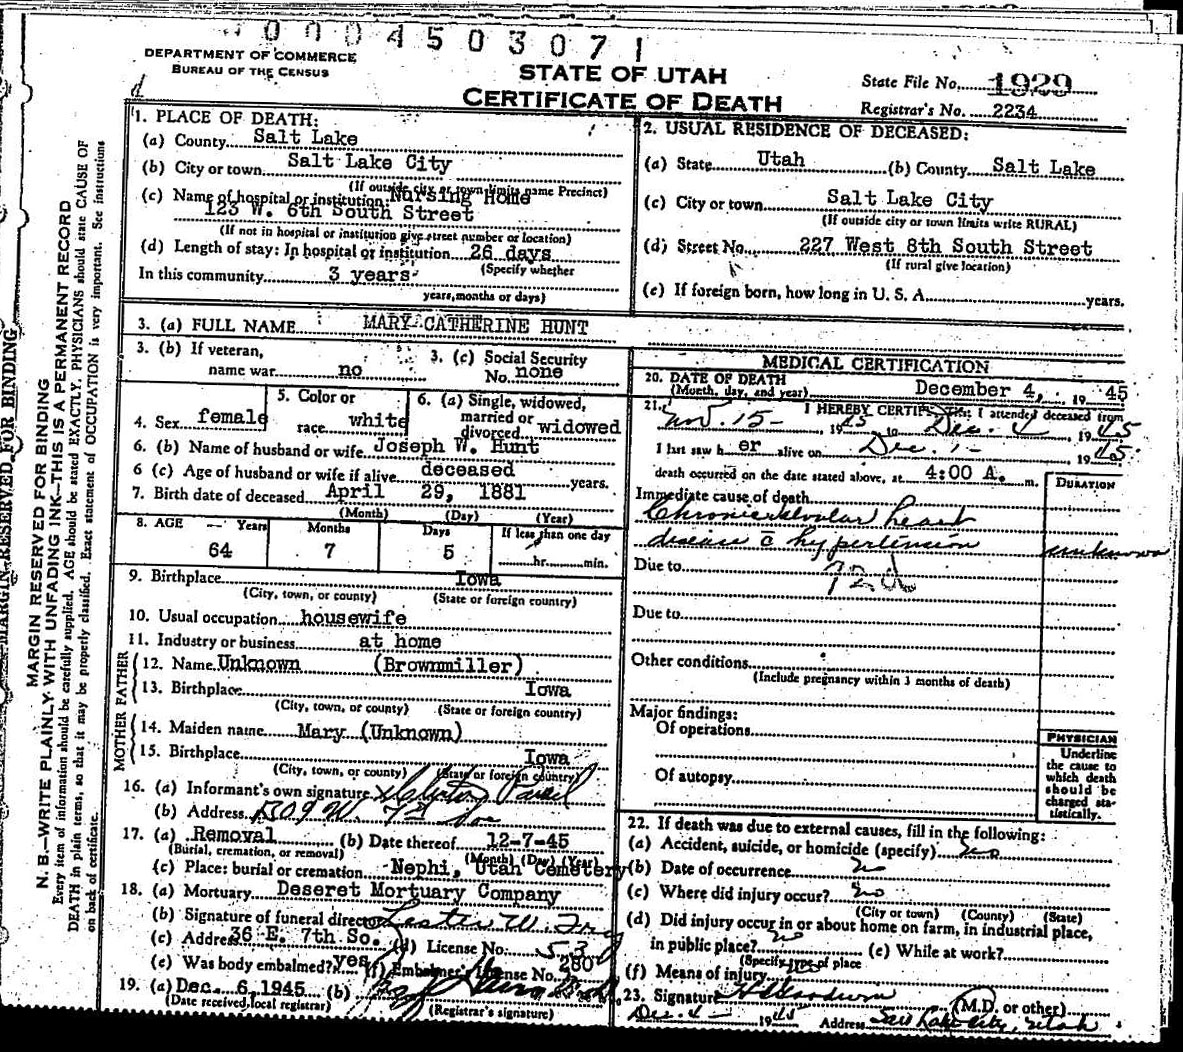 0004503071
DEPARTMENT OF COMMERCE
BUREAU OF THE CENSUS
STATE OF UTAH
CERTIFICATE OF DEATH
State File No. 1929
Registrar's No. 2234
1. PLACE OF DEATH:
(a) County Salt Lake
(b) City or town Salt Lake City
(If outside city or town limits name Precinct)
(c) Name of hospital or institution: Nursing Home
123 W. 6th South Street
(If not in hospital or institution give street number or location)
(d) Length of stay: In hospital or institution 26 days
(Specify whether
In this community 3 years
years, months or days)
2. USUAL RESIDENCE OF DECEASED:
(a) State Utah (b) County Salt Lake
(c) City or town Salt Lake City
(If outside city or town limits write RURAL)
(d) Street No. 227 West 8th South Street
(If rural give location)
(e) If foreign born, how long in U. S. A. years.
3. (a) FULL NAME MARY CATHERINE HUNT
3. (b) If veteran,
name war no
3. (c) Social Security
No. none
4. Sex female
5. Color or
race white
6. (a) Single, widowed,
married or
divorced widowed
6. (b) Name of husband or wife Joseph W. Hunt
6 (c) Age of husband or wife if alive deceased years.
7. Birth date of deceased April 29, 1881
(Month) (Day) (Year)
8. AGE Years Months Days If less than one day
64 7 5 hr. min.
9. Birthplace Iowa
(City, town, or county) (State or foreign country)
10. Usual occupation housewife
11. Industry or business at home
FATHER
12. Name Unknown (Brownmiller)
13. Birthplace Iowa
(City, town, or county) (State or foreign country)
MOTHER
14. Maiden name Mary (Unknown)
15. Birthplace Iowa
(City, town, or county) (State or foreign country)
16. (a) Informant's own signature
(b) Address
17. (a) Removal (b) Date thereof 12-7-45
(Burial, cremation, or removal) (Month) (Day) (Year)
(c) Place: burial or cremation Nephi, Utah Cemetery
18. (a) Mortuary Deseret Mortuary Company
(b) Signature of funeral director Lester W.
(c) Address 36 E. 7th So. (d) License No. 53
(e) Was body embalmed? yes (f) Embalmer's License No. 280
19. (a) Dec. 6, 1945 (b)
(Date received local registrar) (Registrar's signature)
MEDICAL CERTIFICATION
20. DATE OF DEATH
(Month, day, and year) December 4, 19 45
21. I HEREBY CERTIFY That I attended deceased from
Nov. 15 1945 to Dec. 4 1945
I last saw her alive on Dec. 1 1945
death occurred on the date stated above, at 4:00 A. m.
DURATION
Immediate cause of death
Chronic valvular heart
disease c hypertension unknown
Due to
Due to
Other conditions
(Include pregnancy within 3 months of death)
Major findings:
Of operations
Of autopsy
PHYSICIAN
Underline
the cause to
which death
should be
charged sta-
tistically.
22. If death was due to external causes, fill in the following:
(a) Accident, suicide, or homicide (specify) no
(b) Date of occurrence no
(c) Where did injury occur? no
(City or town) (County) (State)
(d) Did injury occur in or about home on farm, in industrial place,
in public place? no (e) While at work?
(Specify type of place
(f) Means of injury
23. Signature (M.D. or other)
Dec. 4 1945 Address Salt Lake City, Utah
MARGIN RESERVED FOR BINDING
MARGIN RESERVED FOR BINDING
N. B.—WRITE PLAINLY WITH UNFADING INK—THIS IS A PERMANENT RECORD
Every item of information should be carefully supplied. AGE should be stated EXACTLY. PHYSICIANS should state CAUSE OF
DEATH in plain terms, so that it may be properly classified. Exact statement of OCCUPATION is very important. See instructions
on back of certificate.